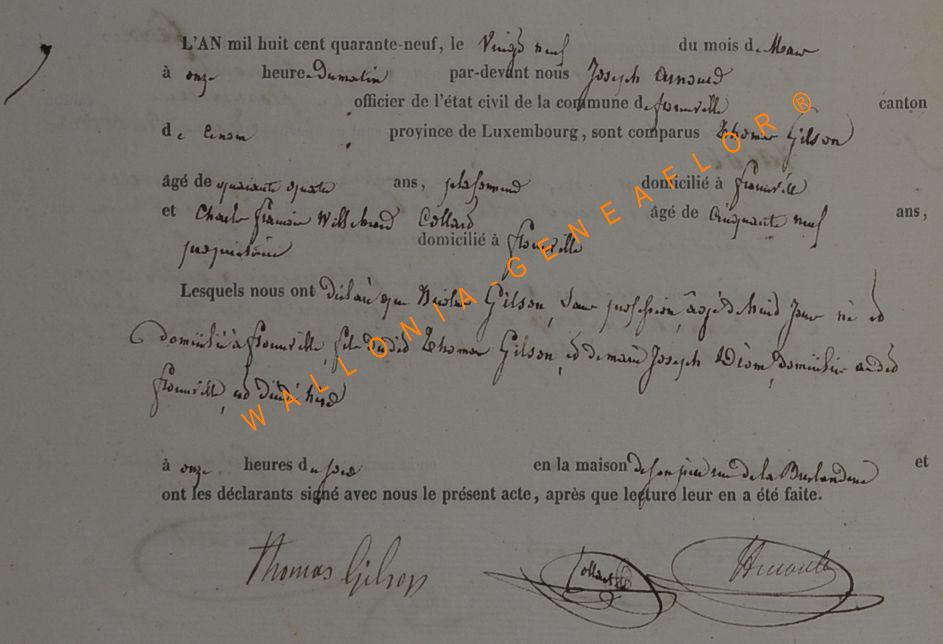 L'AN mil huit cent quarante-neuf, le Vingt neuf du mois de Mars
à onze heures du matin par-devant nous Joseph Arnould
officier de l'état civil de la commune de florenville canton
de province de Luxembourg, sont comparus Thomas Gilson
âgé de quarante quatre ans, domicilié à florenville
et Charles françois Willebrord Collard âgé de Cinquante neuf ans,
propriétaire domicilié à florenville
Lesquels nous ont déclaré que Nicolas Gilson, sans profession, âgé de huit Jours né et
domicilié à florenville, fils dudit Thomas Gilson, et de marie Joseph domiciliée audit
florenville, est décédé hier
à onze heures du soir en la maison de son père rue de la et
ont les déclarants signé avec nous le présent acte, après que lecture leur en a été faite.
Thomas Gilson Collard Arnould
WALLONIA-GENEAFLOR®